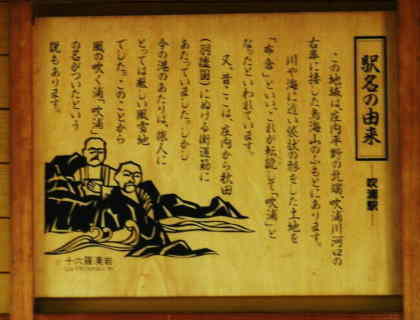 駅名の由来
―吹浦駅―
この地域は、庄内平野の北端吹浦川河口の
右岸に接した鳥海山のふもとにあります。
川や海に近い袋状の形をした土地を
「布倉」といい、これが転訛して「吹浦」と
なったといわれています。
又、昔ここは、庄内から秋田
(羽後国)にぬける街道筋に
あたっていました。しかし
今の港のあたりは、旅人に
とっては厳しい風雪地
でした。このことから
風の吹く浦「吹浦」
の名がついたという
説もあります。
十六羅漢岩